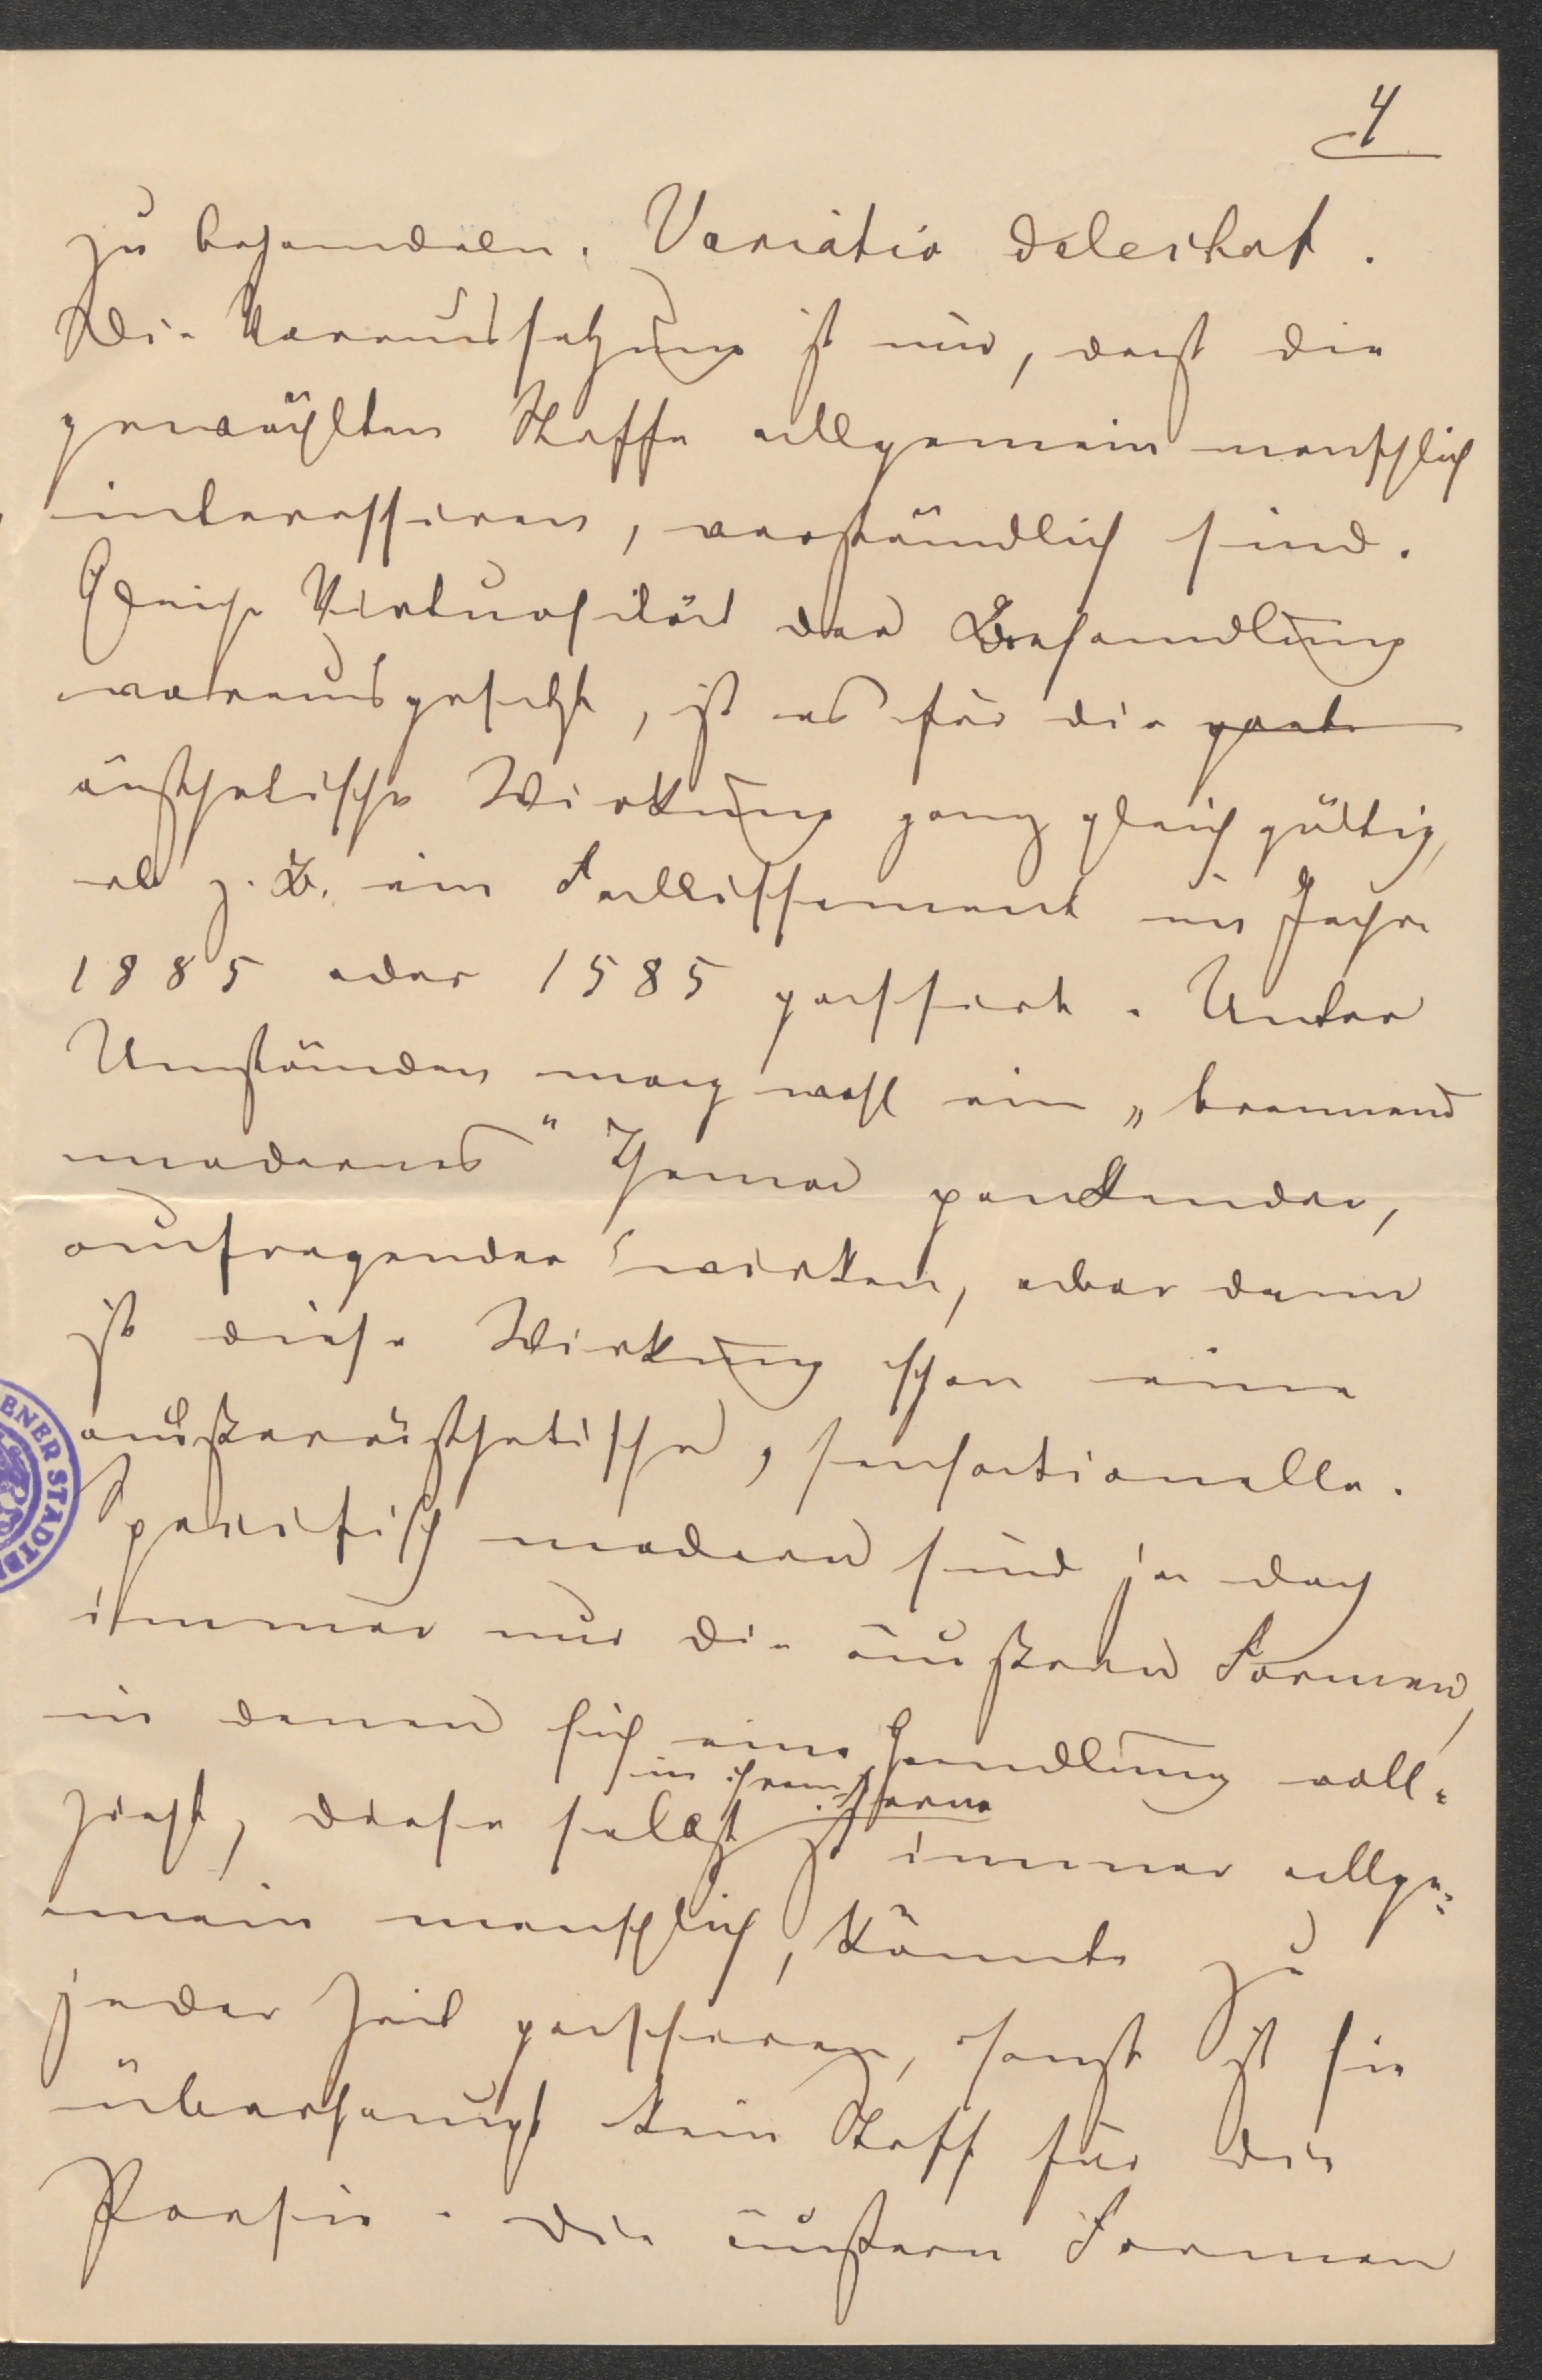 4
zu behandeln. Variatio delectat.
Die Voraussetzung ist nur, daß die
gewählten Stoffe allgemein menschlich
interessiren, verständlich sind.
Gleiche Virtuosität der Behandlung
vorausgesetzt, ist es für die
ästhetische Wirkung ganz gleichgültig,
ob z. B. ein Fallissement im Jahre
1885 oder 1585 passirt. Unter
Umständen mag wohl ein „brennend
modernes" Thema packender,
aufregender wirken, aber dann
ist diese Wirkung schon eine
außerästhetische, sensationelle.
Specifisch modern sind ja doch
immer nur die äußeren Formen,
in denen sich eine Handlung voll-
in ihrem Kerne
zieht, diese selbst ist immer allge-
mein menschlich, könnte zu
jeder Zeit passiren, sonst ist sie
überhaupt kein Stoff für die
Poesie. Die äußern Formen
ENER STADTB